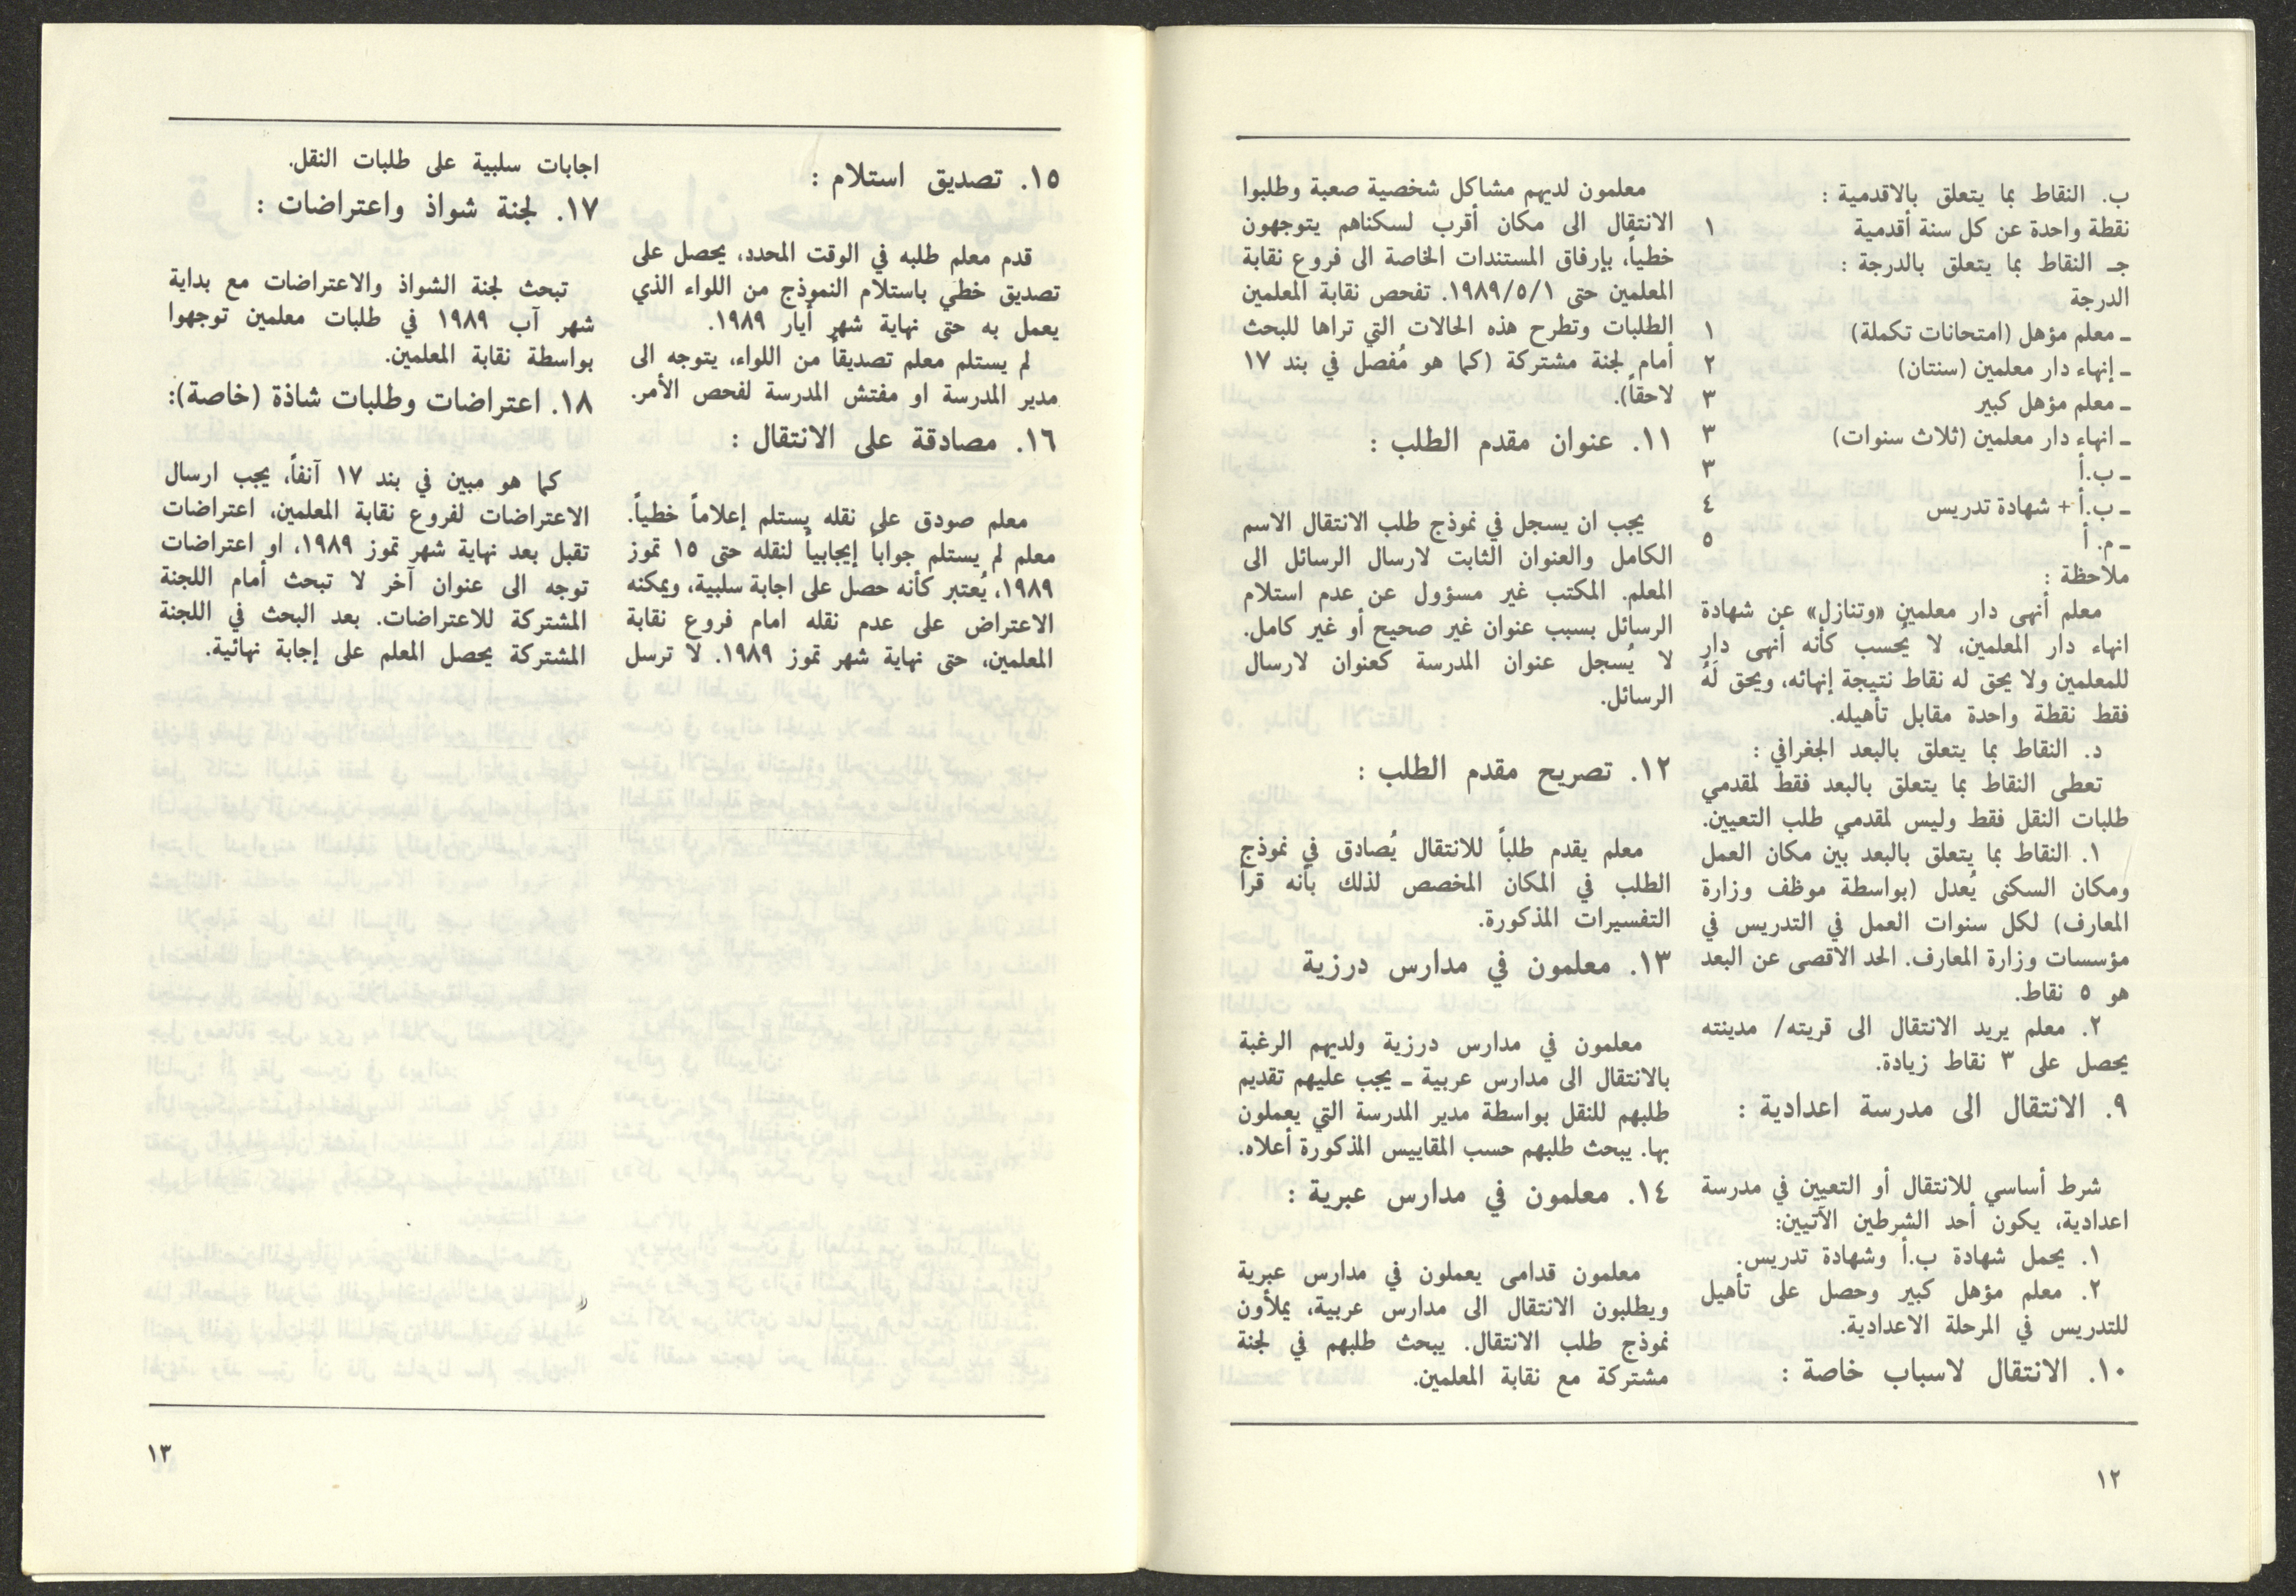 ب. النقاط بما يتعلق بالاقدمية :
نقطة واحدة عن كل سنة أقدمية ١
جـ النقاط بما يتعلق بالدرجة :
الدرجة
ـ معلم مؤهل (امتحانات تكملة) ١
ـ إنهاء دار معلمين (سنتان) ٢
ـ معلم مؤهل كبير ٣
ـ انهاء دار معلمين (ثلاث سنوات) ٣
ـ ب.أ ٣
ـ ب.أ + شهادة تدريس ٤
ـ م. أ ٥
ملاحظة :
معلم أنهى دار معلمين «وتنازل» عن شهادة
انهاء دار المعلمين، لا يُحسب كأنه أنهى دار
للمعلمين ولا يحق له نقاط نتيجة إنهائه، ويحق لَهُ
فقط نقطة واحدة مقابل تأهيله.
د. النقاط بما يتعلق بالبعد الجغرافي :
تعطى النقاط بما يتعلق بالبعد فقط لمقدمي
طلبات النقل فقط وليس لمقدمي طلب التعيين.
١. النقاط بما يتعلق بالبعد بين مكان العمل
ومكان السكنى يُعدل (بواسطة موظف وزارة
المعارف) لكل سنوات العمل في التدريس في
مؤسسات وزارة المعارف. الحد الاقصى عن البعد
هو ٥ نقاط.
٢. معلم يريد الانتقال الى قريته/ مدينته
يحصل على ٣ نقاط زيادة.
٩. الانتقال الى مدرسة اعدادية :
شرط أساسي للانتقال أو التعيين في مدرسة
اعدادية، يكون أحد الشرطين الآتيين:
١. يحمل شهادة ب.أ وشهادة تدريس.
٢. معلم مؤهل كبير وحصل على تأهيل
للتدريس في المرحلة الاعدادية.
١٠. الانتقال لاسباب خاصة :
معلمون لديهم مشاكل شخصية صعبة وطلبوا
الانتقال الى مكان أقرب لسكناهم يتوجهون
خطياً، بإرفاق المستندات الخاصة الى فروع نقابة
المعلمين حتى ١٩٨٩/٥/١. تفحص نقابة المعلمين
الطلبات وتطرح هذه الحالات التي تراها للبحث
أمام لجنة مشتركة (كما هو مُفصل في بند ١٧
لاحقاً).
١١. عنوان مقدم الطلب :
يجب ان يسجل في نموذج طلب الانتقال الاسم
الكامل والعنوان الثابت لارسال الرسائل الى
المعلم. المكتب غير مسؤول عن عدم استلام
الرسائل بسبب عنوان غير صحيح أو غير كامل.
لا يُسجل عنوان المدرسة كعنوان لارسال
الرسائل.
١٢. تصريح مقدم الطلب :
معلم يقدم طلباً للانتقال يُصادق في نموذج
الطلب في المكان المخصص لذلك بأنه قرأ
التفسيرات المذكورة.
١٣. معلمون في مدارس درزية
معلمون في مدارس درزية ولديهم الرغبة
بالانتقال الى مدارس عربية ـ يجب عليهم تقديم
طلبهم للنقل بواسطة مدير المدرسة التي يعملون
بها. يبحث طلبهم حسب المقاييس المذكورة أعلاه.
١٤. معلمون في مدارس عبرية :
معلمون قدامى يعملون في مدارس عبرية
ويطلبون الانتقال الى مدارس عربية، يملأون
نموذج طلب الانتقال. يبحث طلبهم في لجنة
مشتركة مع نقابة المعلمين.
١٢
١٥. تصديق استلام :
قدم معلم طلبه في الوقت المحدد، يحصل على
تصديق خطي باستلام النموذج من اللواء الذي
يعمل به حتى نهاية شهر أيار ١٩٨٩.
لم يستلم معلم تصديقاً من اللواء، يتوجه الى
مدير المدرسة او مفتش المدرسة لفحص الأمر.
١٦. مصادقة على الانتقال :
معلم صودق على نقله يستلم إعلاماً خطياً.
معلم لم يستلم جواباً إيجابياً لنقله حتى ١٥ تموز
١٩٨٩، يُعتبر كأنه حصل على اجابة سلبية، ويمكنه
الاعتراض على عدم نقله امام فروع نقابة
المعلمين، حتى نهاية شهر تموز ١٩٨٩. لا ترسل
اجابات سلبية على طلبات النقل.
١٧. لجنة شواذ واعتراضات :
تبحث لجنة الشواذ والاعتراضات مع بداية
شهر آب ١٩٨٩ في طلبات معلمين توجهوا
بواسطة نقابة المعلمين.
١٨. اعتراضات وطلبات شاذة (خاصة):
كما هو مبين في بند ١٧ آنفاً، يجب ارسال
الاعتراضات لفروع نقابة المعلمين، اعتراضات
تقبل بعد نهاية شهر تموز ١٩٨٩، او اعتراضات
توجه الى عنوان آخر لا تبحث أمام اللجنة
المشتركة للاعتراضات. بعد البحث في اللجنة
المشتركة يحصل المعلم على إجابة نهائية.
١٣